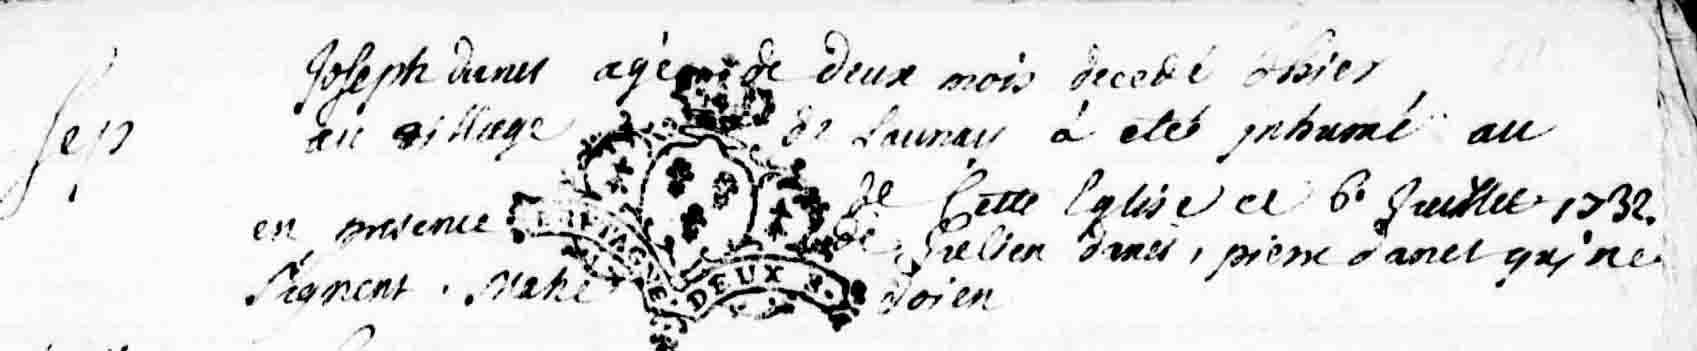 Joseph danet agé de deux mois decedé d'hier
Sep
au village de Launay à eté inhumé au
de Cette Eglise ce 6e Juillet 1732.
en presence de Julien danet, pierre danet qui ne
signent. Mahé doien
BRETAGNE. DEUX S.